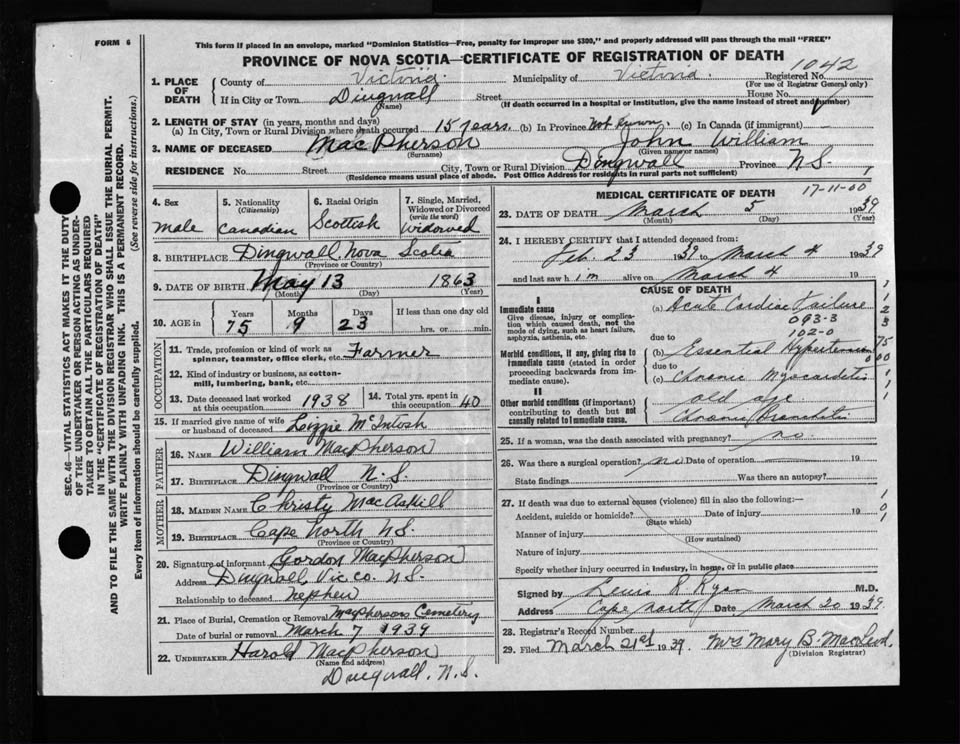 FORM 6
This form if placed in an envelope, marked "Dominion Statistics—Free, penalty for improper use $300," and properly addressed will pass through the mail "FREE"
PROVINCE OF NOVA SCOTIA—CERTIFICATE OF REGISTRATION OF DEATH
SEC. 46—VITAL STATISTICS ACT MAKES IT THE DUTY
OF THE UNDERTAKER OR PERSON ACTING AS UNDER-
TAKER TO OBTAIN ALL THE PARTICULARS REQUIRED
IN THE "CERTIFICATE OF REGISTRATION OF DEATH"
AND TO FILE THE SAME WITH THE DIVISION REGISTRAR WHO SHALL ISSUE THE BURIAL PERMIT.
WRITE PLAINLY WITH UNFADING INK. THIS IS A PERMANENT RECORD.
Every item of information should be carefully supplied. (See reverse side for instructions.)
1. PLACE OF DEATH County of Victoria Municipality of Victoria. Registered No. 1042
(For use of Registrar General only)
If in City or Town Dingwall Street House No.
(Name) (If death occurred in a hospital or institution, give the name instead of street and number)
2. LENGTH OF STAY (in years, months and days)
(a) In City, Town or Rural Division where death occurred 15 years. (b) In Province (c) In Canada (if immigrant) —
3. NAME OF DECEASED MacPherson John William
(Surname) (Given name or names)
RESIDENCE No. Street City, Town or Rural Division Dingwall Province N.S.
(Residence means usual place of abode. Post Office Address for residents in rural parts not sufficient)
4. Sex male
5. Nationality (Citizenship) Canadian
6. Racial Origin Scottish
7. Single, Married, Widowed or Divorced (write the word) Widowed
8. BIRTHPLACE Dingwall Nova Scotia
(Province or Country)
9. DATE OF BIRTH May 13 1863
(Month) (Day) (Year)
10. AGE in Years 75 Months 9 Days 23 If less than one day old
hrs. or min.
OCCUPATION
11. Trade, profession or kind of work as spinner, teamster, office clerk, etc. Farmer
12. Kind of industry or business, as cotton-mill, lumbering, bank, etc.
13. Date deceased last worked at this occupation 1938
14. Total yrs. spent in this occupation 40
15. If married give name of wife or husband of deceased Lizzie McIntosh
FATHER
16. NAME William MacPherson
17. BIRTHPLACE Dingwall N.S.
(Province or Country)
MOTHER
18. MAIDEN NAME Christy MacAskill
19. BIRTHPLACE Cape North N.S.
(Province or Country)
20. Signature of informant Gordon MacPherson
Address Dingwall, Vic co. N.S.
Relationship to deceased nephew
21. Place of Burial, Cremation or Removal MacPhersons Cemetery
Date of burial or removal March 7 1939
22. UNDERTAKER Harold MacPherson
(Name and address)
Dingwall, N.S.
MEDICAL CERTIFICATE OF DEATH
17-11-00
23. DATE OF DEATH March 5 1939
(Month) (Day) (Year)
24. I HEREBY CERTIFY that I attended deceased from:
Feb. 23 1939 to March 4 1939
and last saw h im alive on March 4 19
CAUSE OF DEATH
I
Immediate cause
Give disease, injury or complication which caused death, not the mode of dying, such as heart failure, asphyxia, asthenia, etc.
(a) Acute Cardiac Failure
093-3
102-0
due to
Morbid conditions, if any, giving rise to immediate cause (stated in order proceeding backwards from immediate cause).
(b) Essential Hypertension
due to
(c) Chronic Myocarditis
II
Other morbid conditions (if important) contributing to death but not causally related to immediate cause.
old age
Chronic
25. If a woman, was the death associated with pregnancy? no.
26. Was there a surgical operation? no Date of operation — 19
State findings Was there an autopsy?
27. If death was due to external causes (violence) fill in also the following:—
Accident, suicide or homicide? Date of injury 19
(State which)
Manner of injury
(How sustained)
Nature of injury
Specify whether injury occurred in industry, in home, or in public place
Signed by Lewis R Ryan M.D.
Address Cape North Date March 20 1939.
28. Registrar's Record Number
29. Filed March 21st 1939. Mrs Mary B. MacLeod.
(Division Registrar)